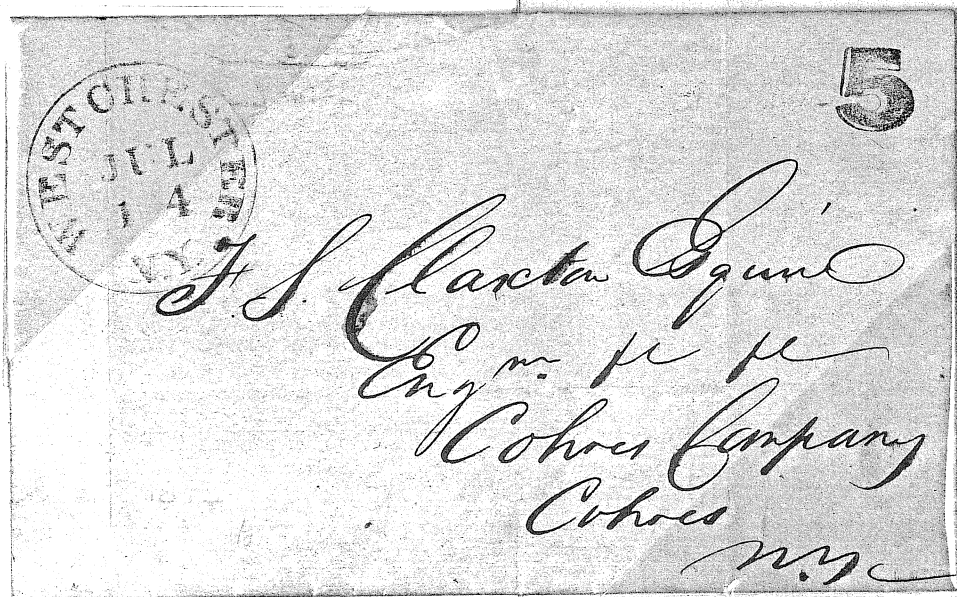 WESTCHESTER
JUL
14
N.Y.
5
F. S. Claxton Esquire
Engnr. &c &c
Cohoes Company
Cohoes
N.Y.